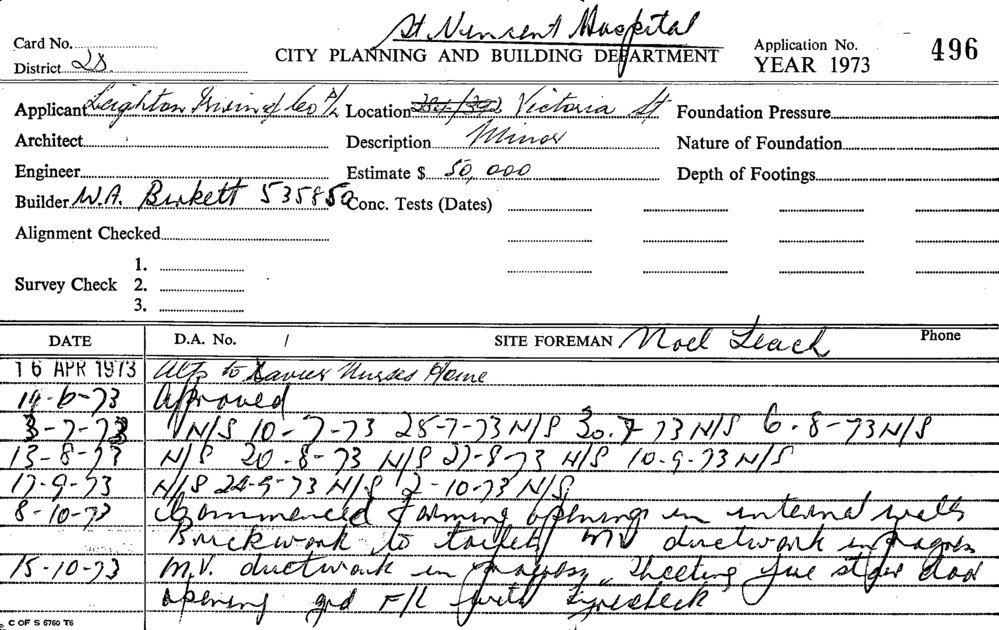 St Vincent Hospital
Card No.
CITY PLANNING AND BUILDING DEPARTMENT
Application No. 496
District 28
YEAR 1973
Applicant Leighton Irwin & Coo P/L Location 384/392 Victoria St Foundation Pressure
Architect Description Minor Nature of Foundation
Engineer Estimate $ 50,000 Depth of Footings
Builder W.A. Burkett 535850 Conc. Tests (Dates)
Alignment Checked
1.
Survey Check 2.
3.
DATE D.A. No. / SITE FOREMAN Noel Leach Phone
16 APR 1973 Alts to Xavier Nurses Home
19-6-73 Approved
3-7-73 N/S 10-7-73 25-7-73 N/S 30.7-73 N/S 6-8-73 N/S
13-8-73 N/S 20-8-73 N/S 27-8-73 N/S 10-9-73 N/S
17-9-73 N/S 24-9-73 N/S 2-10-73 N/S
8-10-73 Commenced forming openings in internal walls
Brickwork to toilets MV ductwork in progress
15-10-73 M.V. ductwork in progress, sheeting fire stair door
opening grd F/L with
C OF S 6760 T6